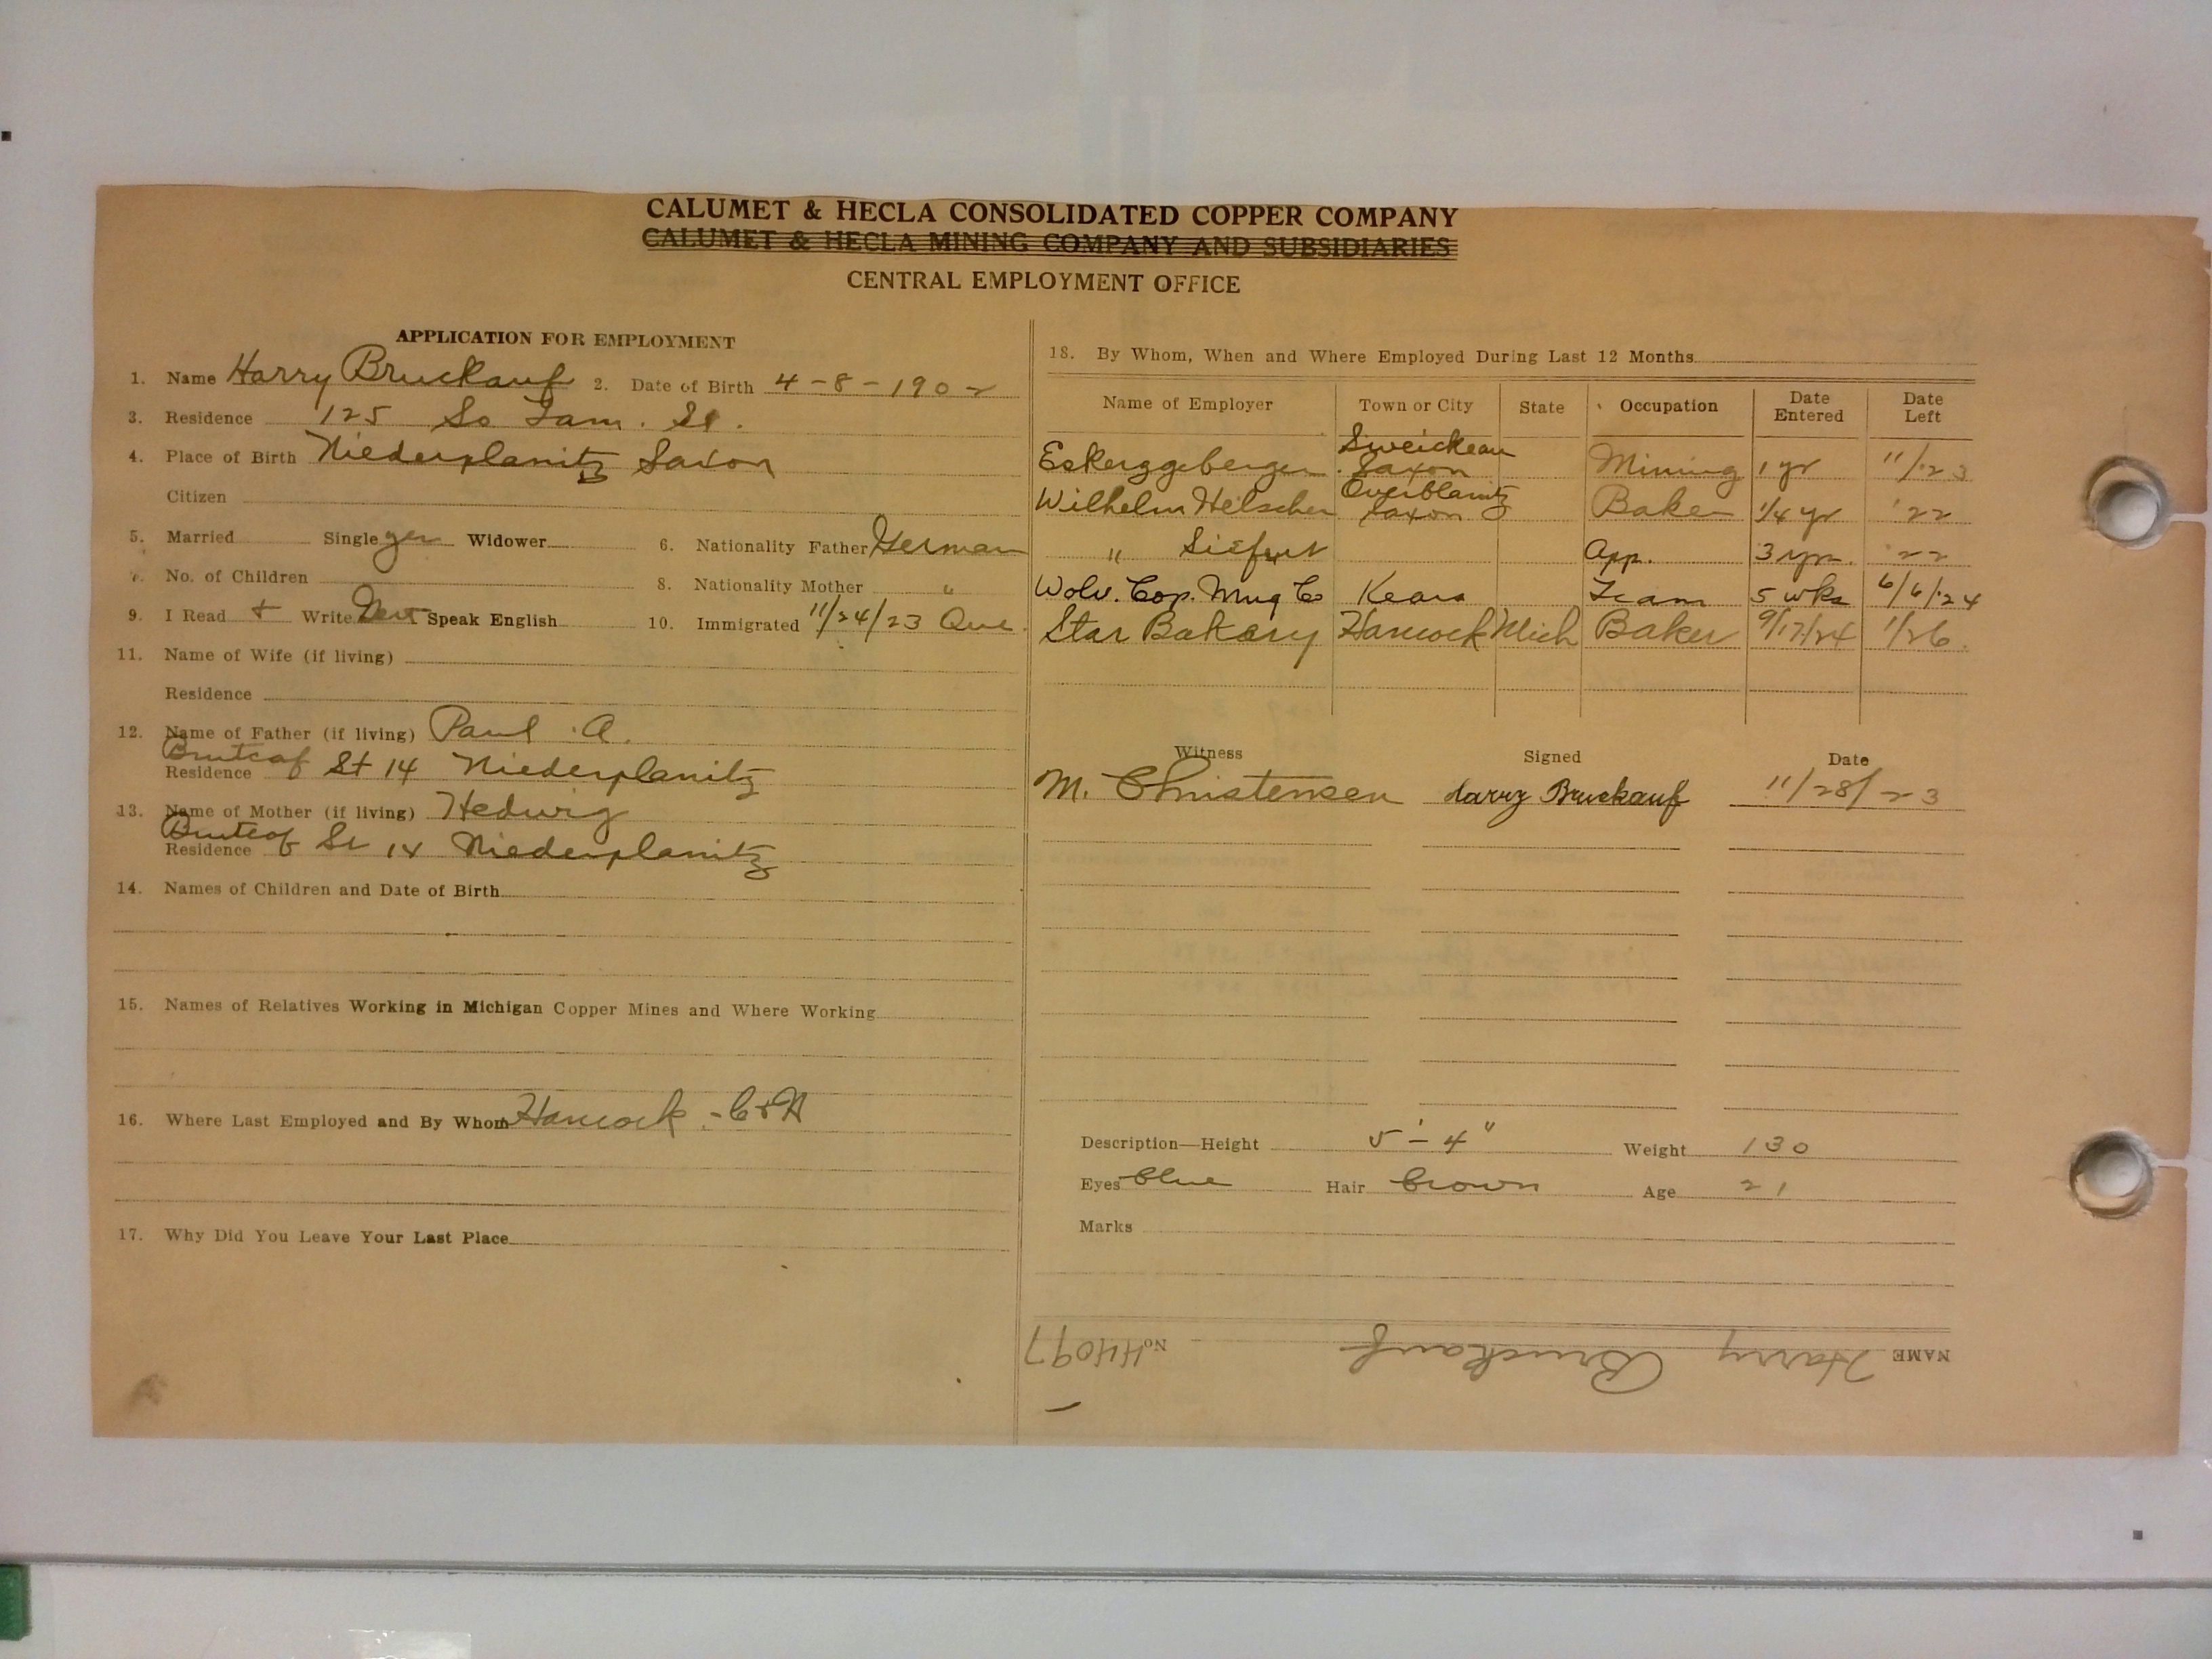 CALUMET & HECLA CONSOLIDATED COPPER COMPANY
CALUMET & HECLA MINING COMPANY AND SUBSIDIARIES
CENTRAL EMPLOYMENT OFFICE
APPLICATION FOR EMPLOYMENT
1. Name Harry Bruckauf 2. Date of Birth 4-8-1902
3. Residence 125 So Tam. St.
4. Place of Birth Niederplanitz Saxon
Citizen
5. Married Single yes Widower 6. Nationality Father German
7. No. of Children 8. Nationality Mother "
9. I Read + Write Speak English 10. Immigrated 11/24/23 Que.
11. Name of Wife (if living)
Residence
12. Name of Father (if living) Paul A.
Residence St 14 Niederplanitz
13. Name of Mother (if living) Hedwig
Residence St 14 Niederplanitz
14. Names of Children and Date of Birth
15. Names of Relatives Working in Michigan Copper Mines and Where Working
16. Where Last Employed and By Whom Hancock - C+H
17. Why Did You Leave Your Last Place
18. By Whom, When and Where Employed During Last 12 Months
Name of Employer Town or City State Occupation Date Entered Date Left
Saxon Mining 1 yr 11/23
Wilhelm Helscher Saxon Baker 1/4 yr '22
" Siefert App. 3 yrs. '22
Wolv. Cop. Mng Co Kears Team 5 wks 6/6/24
Star Bakery Hancock Mich Baker 9/17/24 1/26.
Witness Signed Date
M. Christensen Harry Bruckauf 11/28/23
Description—Height 5'-4" Weight 130
Eyes blue Hair brown Age 21
Marks
NAME Harry Bruckauf No. 44097